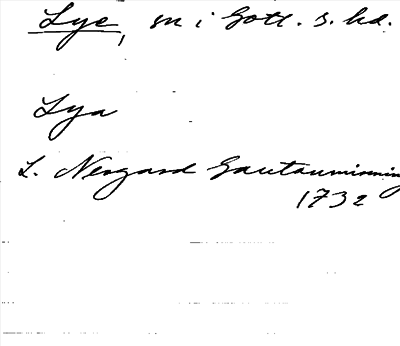 Lye, sn i Gotl. s. hd.
Lya
L. Nergard Gautauminning
1732